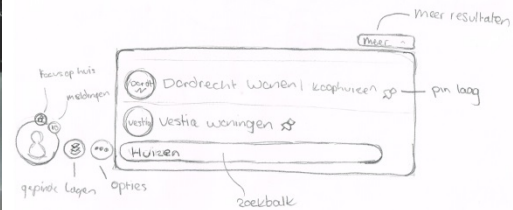 meer resultaten
meer
focus op huis
meldingen
Dordrecht Wonen | koophuizen
pin laag
vestia
Vestia woningen
Huizen
gepinde lagen
opties
zoekbalk